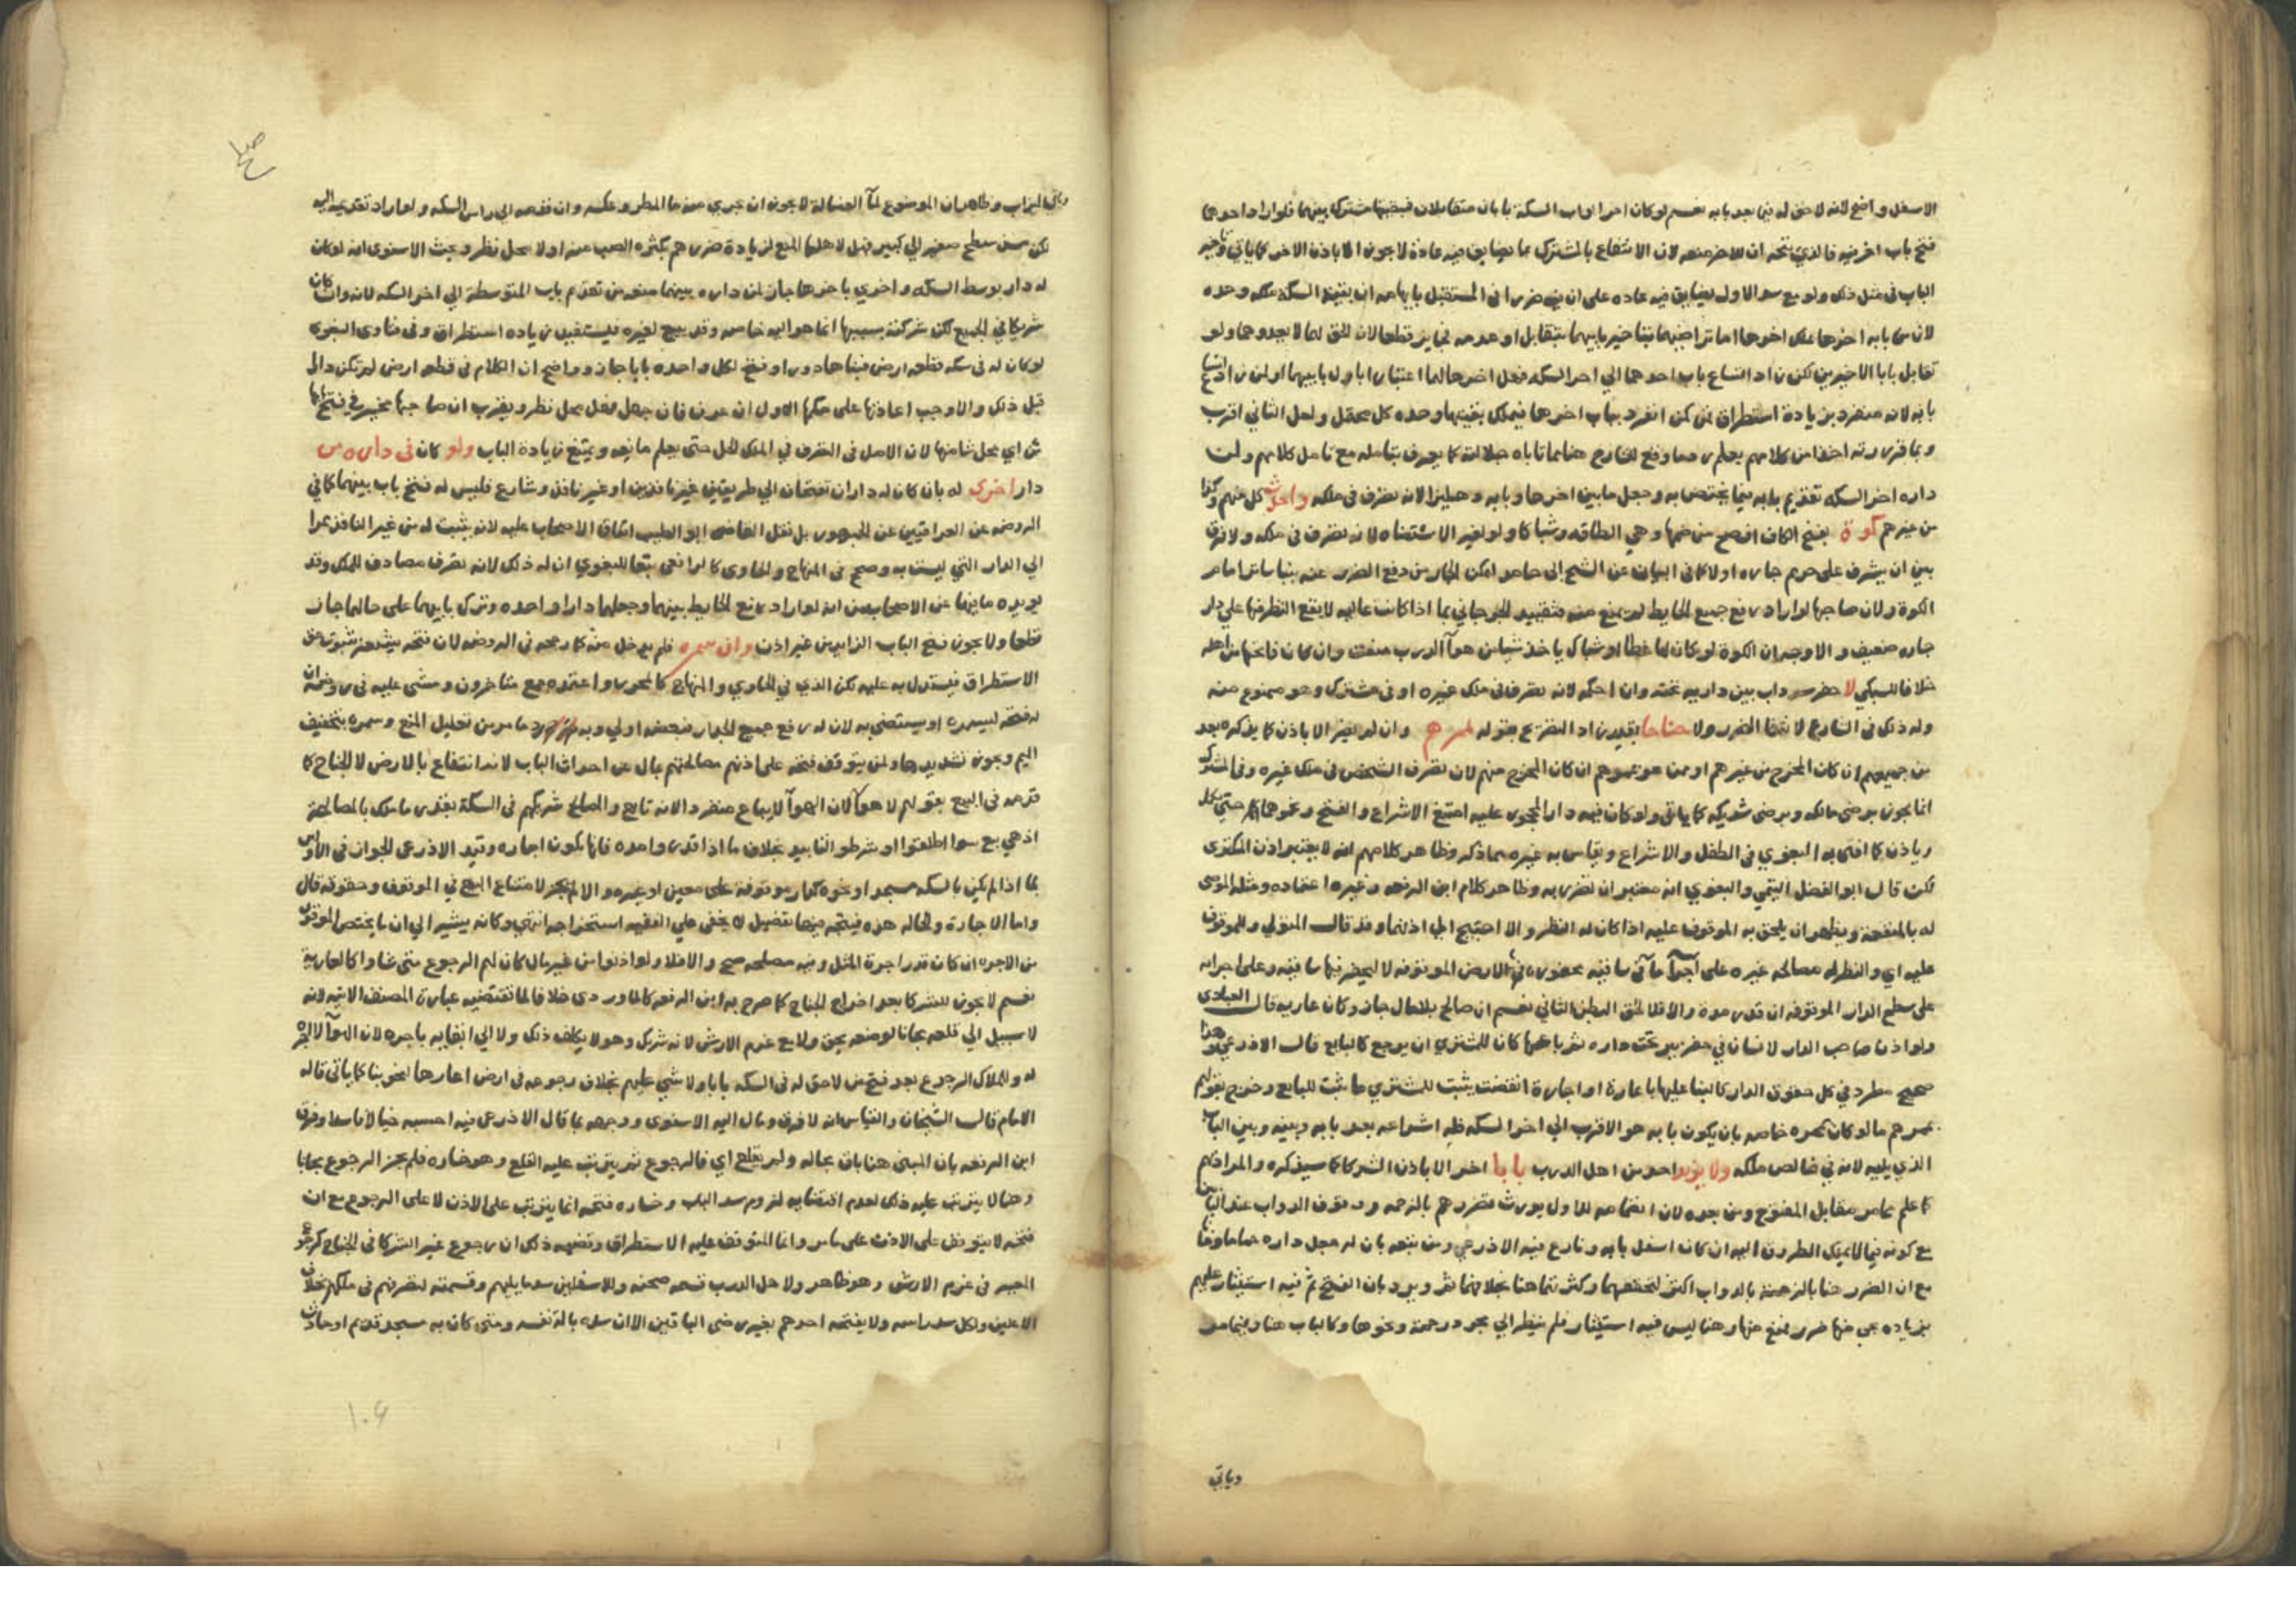 الاسفل واضح لانه لا حق له فيما بعد بابه نعم لو كان اخر ابواب السكة بابان متقابلان فبقيتها مشتركة بينهما فلو اراد احدهما
فتح باب اخر فيه فالذي يتجه ان للاخر منعه لان الانتفاع بالمشترك بما يضايق فيه عادة لا يجوز الا باذن الاخر كما ياتي
الباب في مثل ذلك ولو مع سد الاول يضايق فيه عاده على ان فيه ضررا في المستقبل بايهامه ان بقية السكة ملكه وحده
لان من بابه اخرها ملك اخرها اما تراضيهما بتاخير بابيهما بتقابل او عدمه فجايز قطعا لان الحق لهما لا يعدوهما ولو
تقابل بابا الاخيرين لكن زاد اتساع باب احدهما الي اخر السكة فهل اخرها لهما اعتبارا باول بابيهما او لمن زاد اتساع
بابه لانه منفرد بزيادة استطراق لمن انفرد بباب اخرها فيملك بقيتها وحده كل محتمل ولعل الثاني اقرب
وبما قررته اخذا من كلامهم يعلم رد ما وقع لشارح هنا مما تاباه جلالته كما يعرف بتامله مع تامل كلامهم ولمن
داره اخر السكة تقديم بابه فيما يختص به وجعل ما بين اخرها وبابه دهليزا لانه تصرف في ملكه واحدث كل منهم وكذا
من غيرهم كوة بفتح الكاف افصح من ضمها وهي الطاقة وشباكا ولو لغير الاستضاه لانه تصرف في ملكه ولا فرق
بين ان يشرف على حريم جاره اولا كما في البيان عن الشيخ ابي حامد لتمكن الجار من دفع الضرر عنه ببنا ساتر امام
الكوة ولان صاحبها لو اراد رفع جميع الحايط لم يمنع منه فتقييد الجرجاني بما اذا كانت عاليه لا يقع النظر فيها على دار
جاره ضعيف والاوجه ان الكوة لو كان لها غطا او شباك ياخذ شيا من هوا الدرب منعت وان كان فاتحها من اهله
خلافا للسبكي لا حفر سرداب بين داريه تحته وان احكمه لانه تصرف في ملك غيره او في مشترك وهو ممنوع منه
وله ذلك في الشارع لانتفا الضرر ولا جناحا بقيد زاد التفريع بقوله لمرهم وان لم يضر الا باذن كما يذكره بعد
من جميعهم ان كان المخرج من غيرهم او ممن هو عموهم ان كان المخرج منهم لان تصرف الشخص في ملك غيره وفي المشترك
انما يجوز برضى مالكه وبرضى شريكه كما ياتي ولو كان فيهم دار لمحجور عليه امتنع الاشراع والفتح ونحوهما حتى يكمل
وياذن كما افتى به البغوي في الطفل والاشراع ويقاس به غيره مما ذكر وظاهر كلامهم انه لا يعتبر اذن المكتري
لكن قال ابو الفضل التيمي والبغوي انه معتبر ان تضرر به وظاهر كلام ابن الرفعه وغيره اعتماده ومثله الموصى
له بالمنفعة ويظهر ان يلحق به الموقوف عليه اذا كان له النظر والا احتيج الى اذنهما وقد قال المتولي وللموقوف
عليه اي والنظر له مصالحة غيره على اجرا ما في ساقيه محفورة في الارض الموقوفه لا ليحفر فيها ساقيه وعلى اجرايه
على سطح الدار الموقوفه ان قدر مدة والا فلا لحق البطن الثاني نعم ان صالح بلا مال جاز وكان عاريه قال العبادي
ولو اذن صاحب الدار لانسان في حفر بير تحت داره ثم باعها كان للمشتري ان يرجع كالبايع قال الاذرعي وهذا
صحيح مطرد في كل حقوق الدار كالبنا عليها باعارة او اجارة انقضت يثبت للمشتري ما ثبت للبايع وخرج بقولهم
بممرهم ما لو كان ممره خاصه بان يكون بابه هو الاقرب الي اخر السكه فله اشراعه بعد بابه وبينه وبين الباب
الذي يليه لانه في خالص ملكه ولا يزيد احد من اهل الدرب بابا اخر الا باذن الشركا كما سيذكره والمراد بهم
كما علم مما مر مقابل المفتوح ومن بعده لان انضمامه للاول يورث تضررهم بالزحمه ووقوف الدواب عند البابين
مع كونه فيما لا يملك الطروق اليه ان كان اسفل بابه ونازع فيه الاذرعي ومن تبعه بان له جعل داره حماما وخانا
مع ان الضرر هنا بالزحمة بالدواب اكثر لتحققها وكثرتها هنا بخلافهما ثم ويرد بان الفتح ثم فيه استيثار عليهم
بزياده عين فيها ضرر فمنع منها وهنا ليس فيه استيثار فلم ينظر الي مجرد زحمة ونحوها وكالباب هنا وفيما مر
وياتي
وياتي الميزاب وظاهر ان الموضوع لما الغسالة لا يجوز ان يجري منه ما المطر وعكسه وان فتحه الى راس السكه ولو اراد تقديمه اليه
لكن من سطح صغير الي كبير فهل لاهلها المنع لزيادة ضررهم بكثرة الصب منه او لا محل نظر وبحث الاسنوي انه لو كان
له دار بوسط السكه واخري باخرها جاز لمن داره بينهما منعه من تقديم باب المتوسطة الي اخر السكه لانه وان كان
شريكا في الجميع لكن شركته بسببها انما هو اليها خاصه وقد يبيع لغيره فيستفيد زياده استطراق وفي فتاوى البغوي
لو كان له في سكه قطعه ارض فبناها دورا وفتح لكل واحده بابا جاز وواضح ان الكلام في قطعه ارض لم تكن دارا
قبل ذلك والا وجب اعادتها على حكمها الاول ان عرف فان جهل فهل محل نظر ويقرب ان صاحبها يخير في فتح ايها
ش اي محل شا منها لان الاصل في التصرف في الملك الحل حتى يعلم مانعه ويمتنع زيادة الباب ولو كان في داره من
دار اخرى له بان كان له داران تفتحان الي طريقين غير نافذين او غير نافذ وشارع فليس له فتح باب بينهما كما في
الروضه عن العراقيين عن الجمهور بل نقل القاضي ابو الطيب اتفاق الاصحاب عليه لانه يثبت له من غير النافذ ممرا
الي الدار التي ليست به وصحح في المنهاج والحاوى كالرافعي تبعا للبغوي ان له ذلك لانه تصرف مصادف للملك وقد
يويده ما فيها عن الاصحاب من انه لو اراد رفع الحايط بينهما وجعلهما دارا واحده وترك بابيهما على حالهما جاز
قطعا ولا يجوز فتح الباب الزايد من غير اذن وان سمره فلم يدخل منه كما رجحه في الروضه لان فتحه يشعر بثبوت حق
الاستطراق فيستدل به عليه لكن الذي في الحاوي والمنهاج كالمحرر واعتمده جمع متاخرون ومشى عليه في روضه ان
له فتحه ليسمره او يستضيء به لان له رفع جميع الجدار فبعضه اولي وبه يرد ما مر من تعليل المنع وسمره بتخفيف
الميم ويجوز تشديدها ولمن يتوقف فتحه على اذنهم مصالحتهم بمال عن احداث الباب لانه انتفاع بالارض لا الجناح كما
قدمه في البيع بقولهم لا هوا لان الهوا لا يباع منفردا لانه تابع والمصالح شريكهم في السكة بقدر ما ملك بالمصالحة
اذ هي بيع سوا اطلقوا او شرطوا التابيد بخلاف ما اذا قدروا مده فانها تكون اجاره وقيد الاذرعي الجواز في الاولى
بما اذا لم يكن بالسكه مسجد او نحوه كدار موقوفة على معين او غيره والا لم يجز لامتناع البيع في الموقوف وحقوقه قال
واما الاجارة والحاله هذه فيتجه فيها تفصيل لا يخفى على الفقيه استخراجه انتهي وكانه يشير الي ان ما يختص الموقوف
من الاجره ان كان قدر اجرة المثل وفيه مصلحه صح والا فلا ولو اذنوا من غير مال كان لهم الرجوع متى شاوا كالعارية
نعم لا يجوز للشركا بعد اخراج الجناح كما صرح به ابن الرفعه كالماوردي خلافا لما تقتضيه عبارة المصنف الاتيه لانه
لا سبيل الي قلعه مجانا لوضعه بحق ولا مع غرم الارش لانه شريك وهو لا يكلف ذلك ولا الي ابقايه باجره لان الهوا لا اجره
له وللملاك الرجوع بعد فتح من لا حق له في السكه بابا ولا شي عليهم بخلاف رجوعه في ارض اعارها لنحو بنا كما ياتي قاله
الامام قال الشيخان والقياس انه لا فرق ومال اليه الاسنوى ووجهه بما قال الاذرعي فيه احسبه خيالا فاسدا وفرق
ابن الرفعه بان المبنى هنا باق بحاله ولم يقلع اي فالرجوع ثم يترتب عليه القلع وهو خساره فلم يجز الرجوع مجانا
وهنا لا يترتب عليه ذلك لعدم اقتضايه لزوم سد الباب وخساره فتحه انما يترتب على الاذن لا على الرجوع مع ان
فتحه لا يتوقف على الاذن على ما مر وانما المتوقف عليه الاستطراق وقضيه ذلك ان رجوع غير الشركا في الجناح كرجوع
المعير في غرم الارش وهو ظاهر ولاهل الدرب قسمه صحنه وللاسفلين سد ما يليهم وقسمته لتصرفهم في ملكهم بخلاف
الاعلين ولكل سد راسه ولا يفتحه احدهم بغير رضى الباقين الا ان سده بالة نفسه ومتى كان به مسجد قديم او حادث
١٠٤